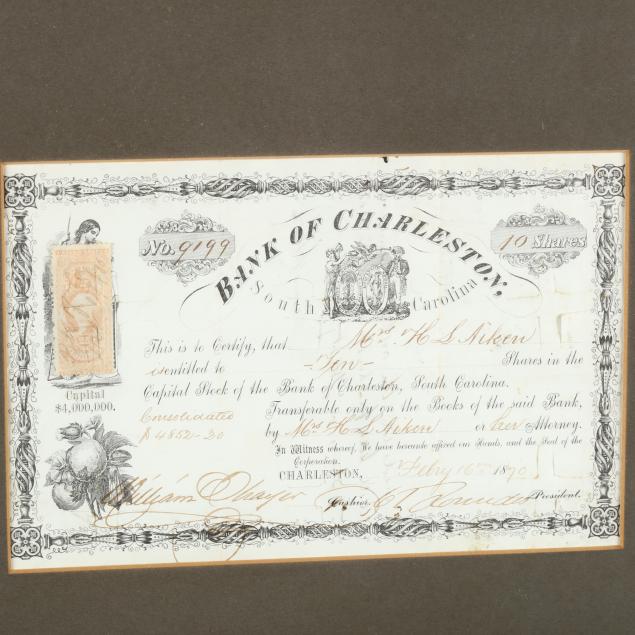 No. 9199
BANK OF CHARLESTON,
10 Shares
South Carolina
This is to Certify, that Mrs. H S Aiken
is entitled to -Ten- Shares in the
Capital Stock of the Bank of Charleston, South Carolina.
Transferable only on the Books of the said Bank,
by Mrs H S Aiken or her Attorney.
In Witness whereof, We have hereunto affixed our Hands, and the Seal of the
Corporation.
CHARLESTON, Feby 16th 1870
Capital
$4,000,000.
Consolidated
William Thayer
Cashier.
President.